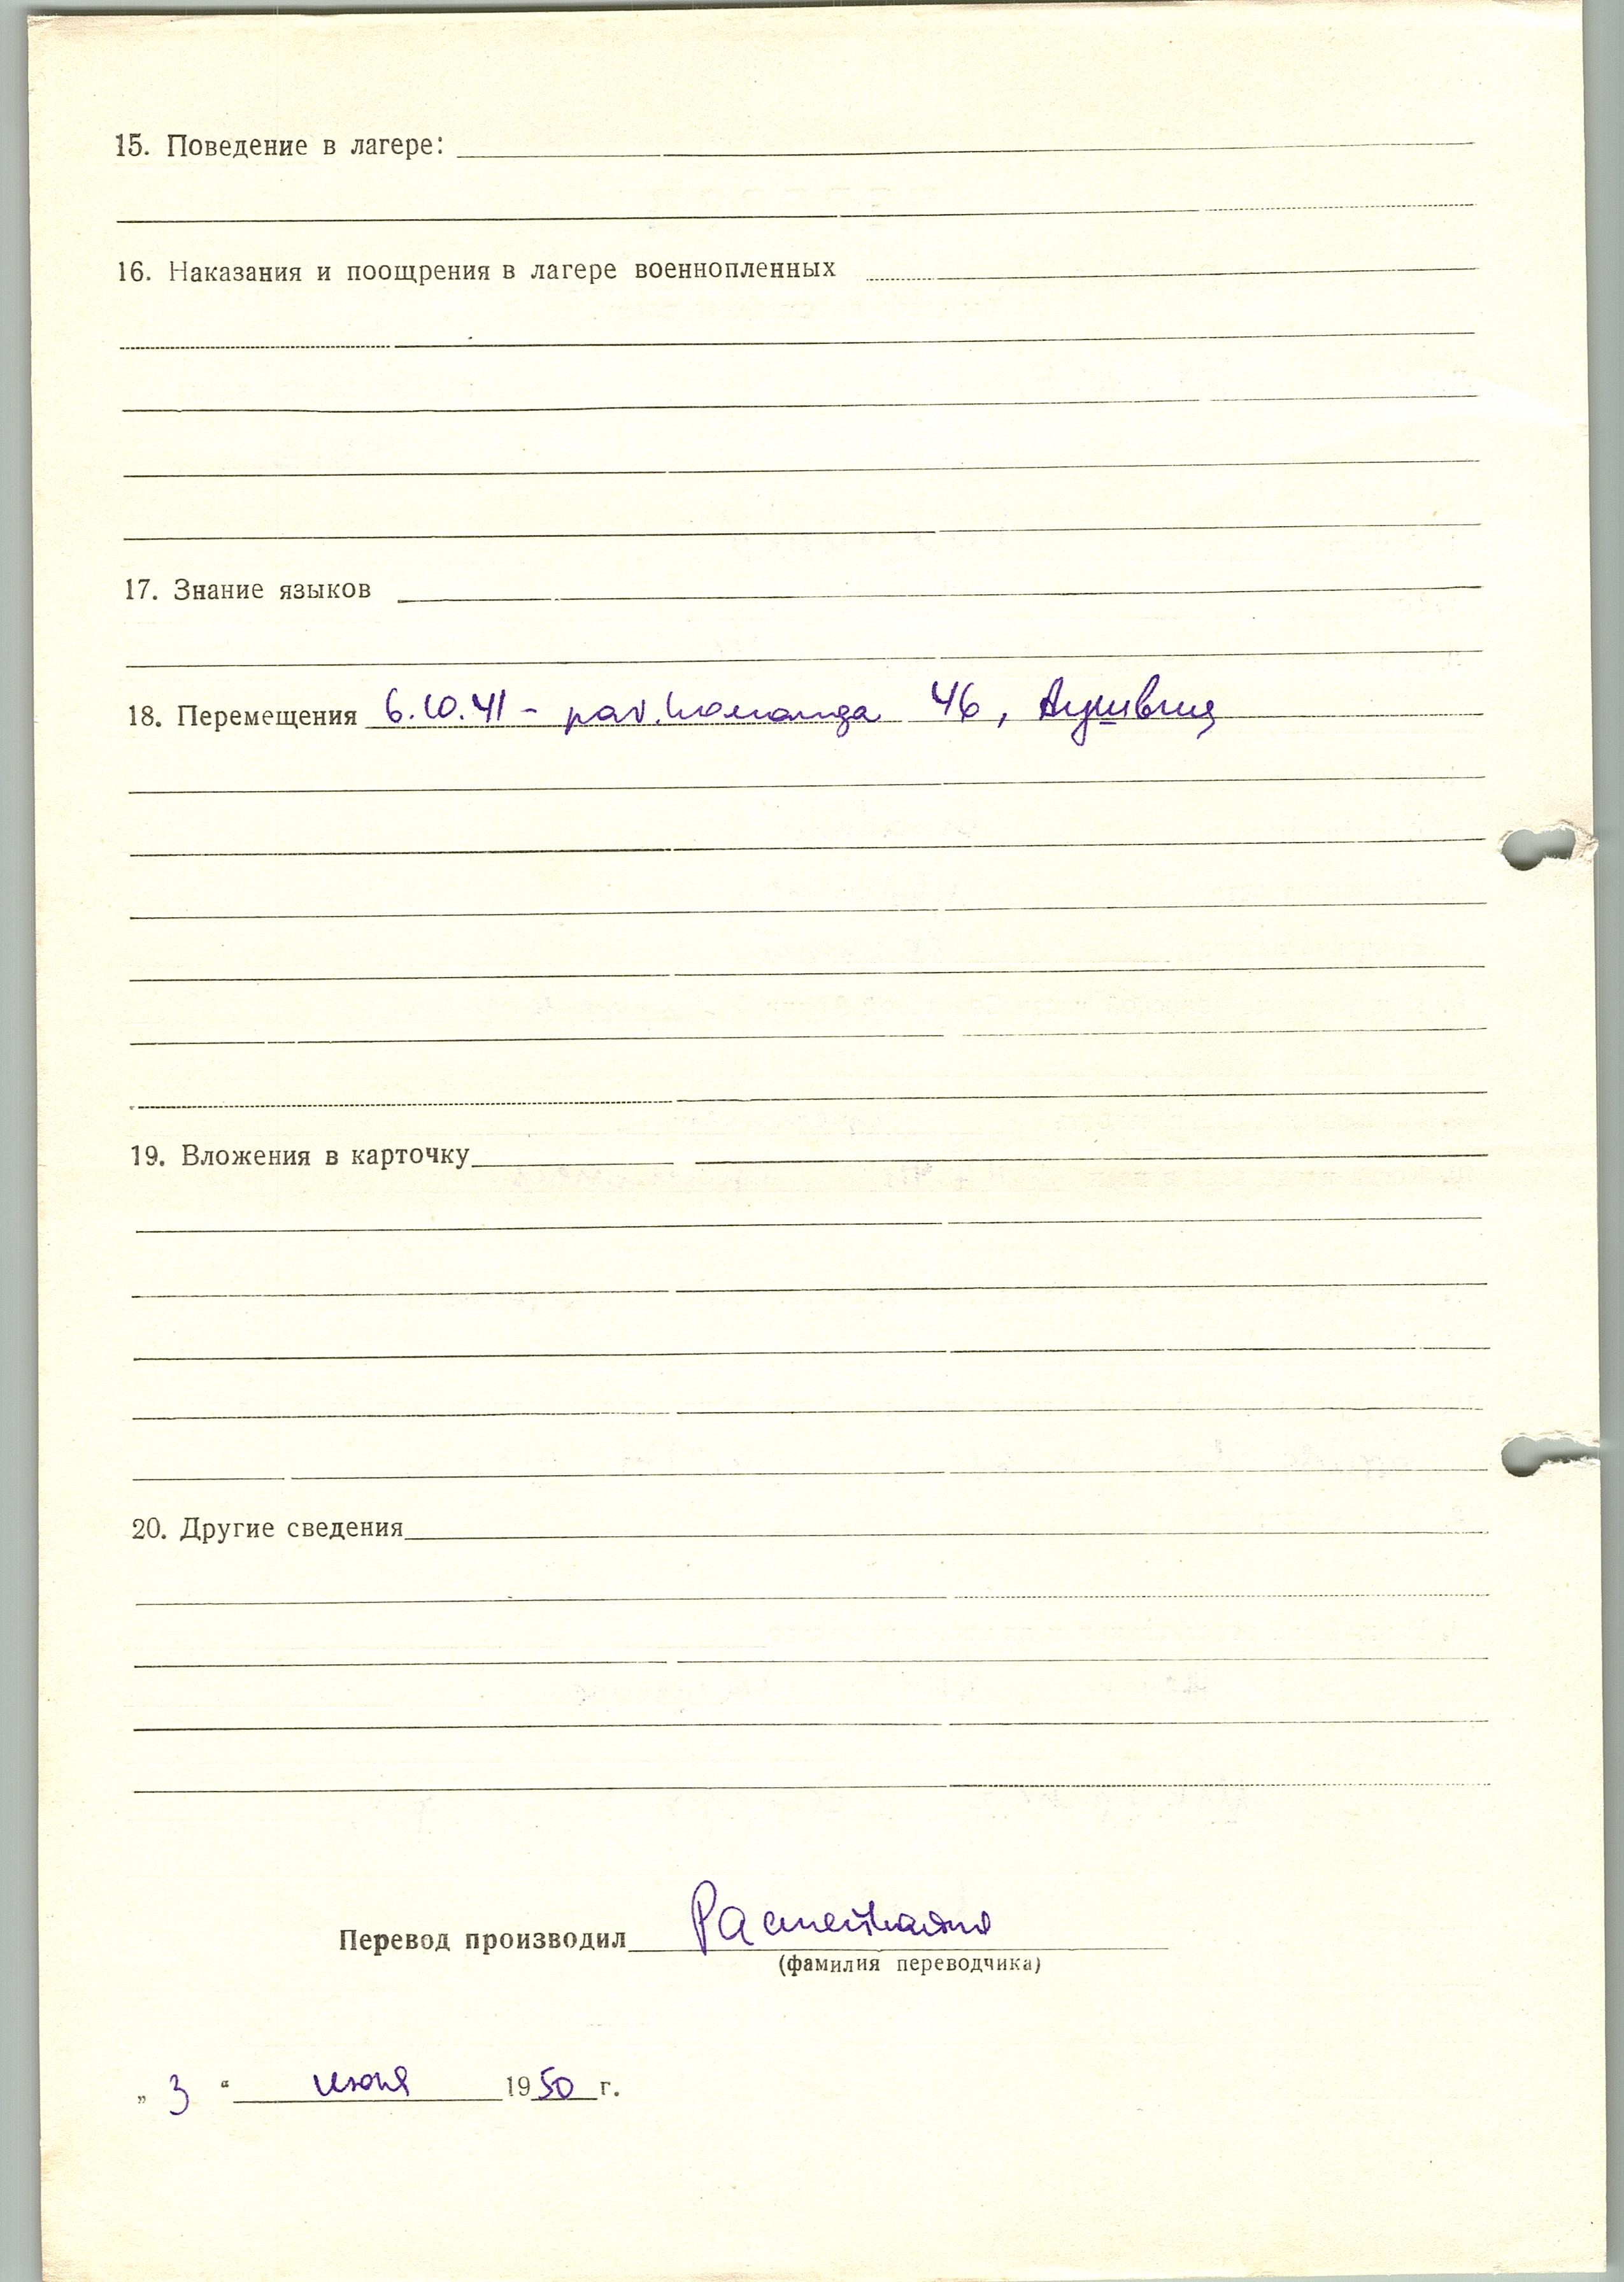 15. Поведение в лагере:
16. Наказания и поощрения в лагере военнопленных
17. Знание языков
18. Перемещения 6.10.41 - раб. команда 46, Аушвиц
19. Вложения в карточку
20. Другие сведения
Перевод производил
(фамилия переводчика)
„ 3 “ июня 1950 г.